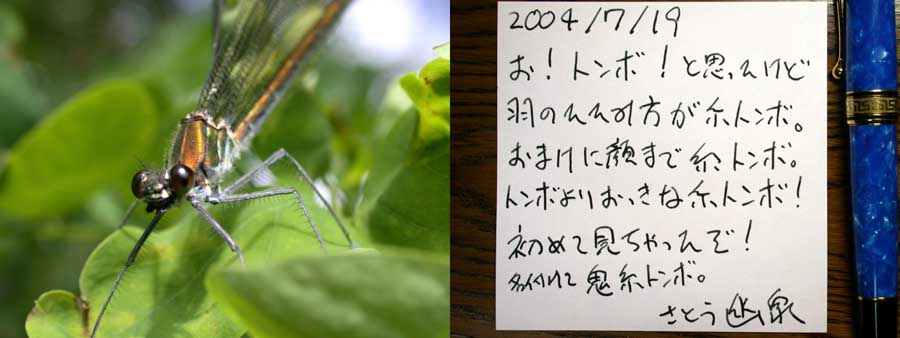 2004/7/19
お！トンボ！と思ったけど
羽のたたみ方が糸トンボ。
おまけに顔まで糸トンボ。
トンボよりおっきな糸トンボ！
初めて見ちゃったぞ！
名付けて鬼糸トンボ。
さとう